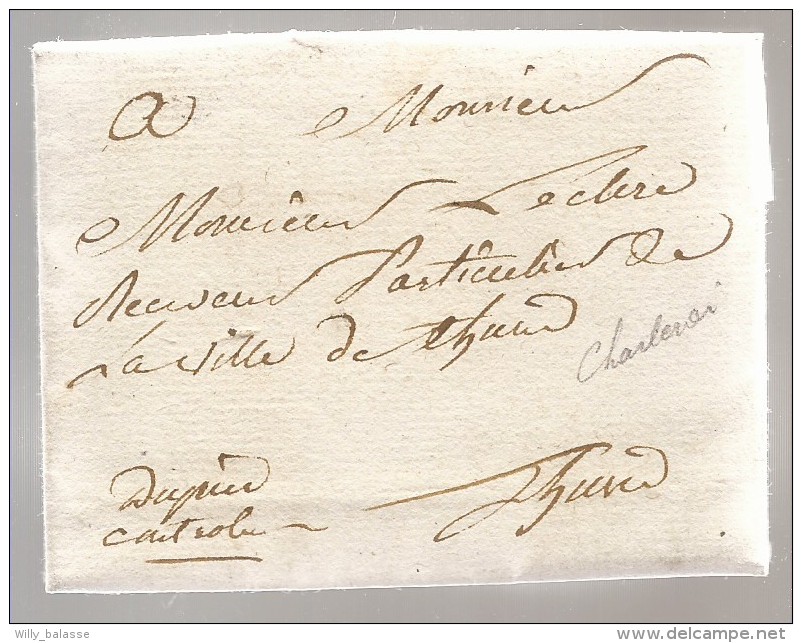 A Monsieur
Monsieur Leclere
Receveur Particulier de
La ville de thuin
Charleroi
Dupuis
controle
Thuin
Willy_balasse
delcampe.net